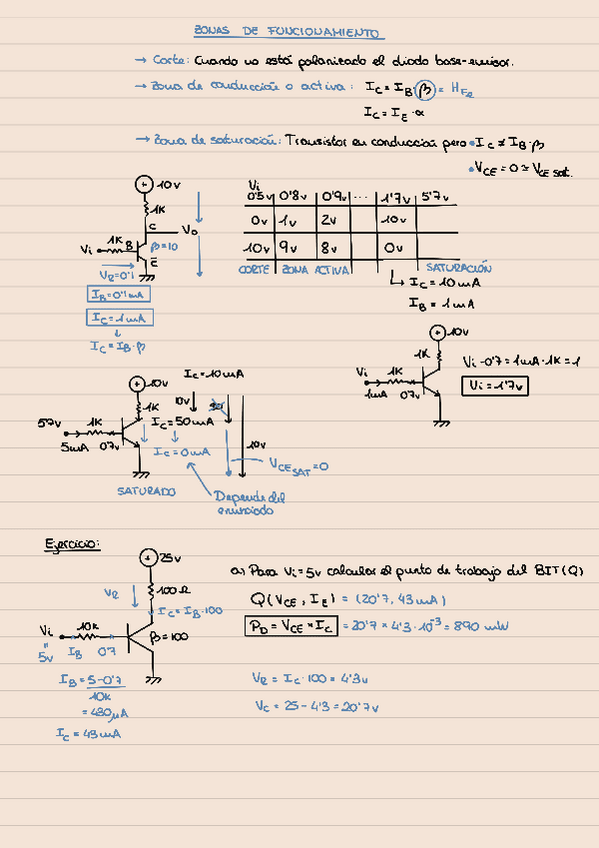 ZONAS DE FUNCIONAMIENTO
→ Corte: Cuando no está polarizado el diodo base-emisor.
→ Zona de conducción o activa: I_C = I_B·β = H_FE
I_C = I_E·α
→ Zona de saturación: Transistor en conducción pero • I_C ≠ I_B·β
• V_CE = 0 ≃ V_CE sat.
10v
1K
C
V_O
Vi 1K B
β=10
E
V_R=0'1
I_B=0'1mA
I_C=1mA
I_C=I_B·β
Vi
0'5v 0'8v 0'9v ... 1'7v 5'7v
0v 1v 2v 10v
10v 9v 8v 0v
CORTE ZONA ACTIVA SATURACIÓN
I_C = 10mA
I_B = 1mA
10v
1K
Vi 1K
1mA 0'7v
Vi-0'7=1mA·1K=1
Vi=1'7v
10v
1K
I_C=10mA
10v
I_C=50mA
57v 1K
5mA 0'7v
I_C=0mA
10v
V_CE SAT=0
SATURADO
Depende del
enunciado
Ejercicio:
25v
100Ω
V_R
I_C=I_B·100
Vi 10k
β=100
5v I_B 0'7
I_B=5-0'7
10k
=430μA
I_C=43mA
a) Para Vi=5v calcular el punto de trabajo del BJT(Q)
Q(V_CE, I_E) = (20'7, 43mA)
P_D = V_CE × I_C = 20'7 × 43·10^-3 = 890 mW
V_R = I_C·100 = 4'3v
V_C = 25-4'3=20'7v